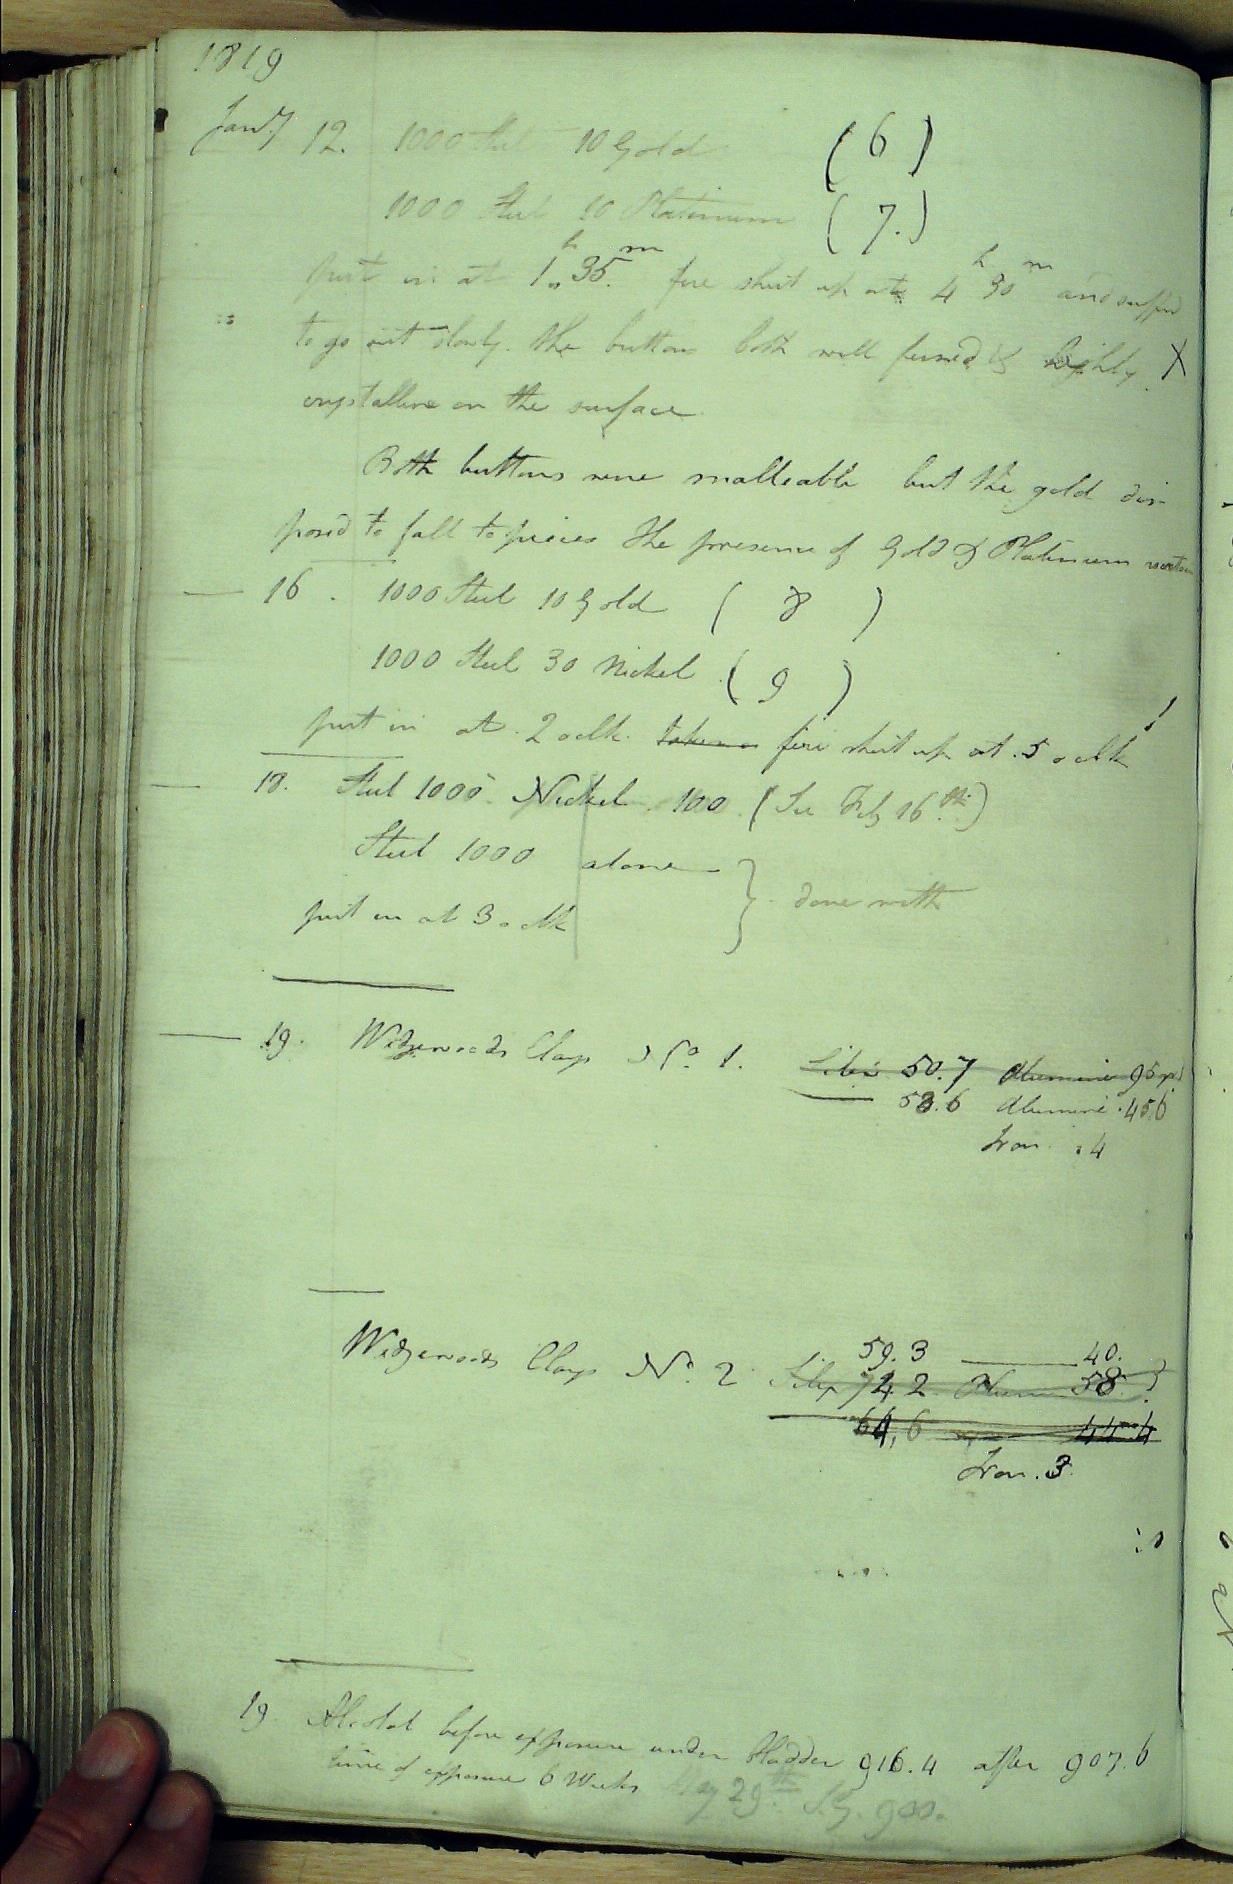 1819
Jan.y 12. 1000 Steel 10 Gold (6)
1000 Steel 10 Platinum (7.)
put in at 1h. 35m. fire shut up at 4h 30m and suffd
to go out slowly. The buttons both well fused & highly X
crystalline on the surface.
Both buttons were malleable but the gold dis-
posed to fall to pieces The presence of Gold & Platinum
16. 1000 Steel 10 Gold (8)
1000 Steel 30 Nickel (9)
put in at 2 oclk. taken fire shut up at 5 oclk
18. Steel 1000 Nickel 100 (See Feby 16th)
Steel 1000 alone
} done with
put in at 3 oclk
19. Wedgewoods Clays No. 1. Silex 50.7 Alumine 95
53.6 Alumine 45.6
Iron .4
59.3 40.
Wedgewoods Clays No. 2 Silex 74.2 Alumine 58.
64,6 44.4
Iron .3
19 Alcohol before exposure under bladder 916.4 after 907.6
time of exposure 6 Weeks May 29th S.G. 900.